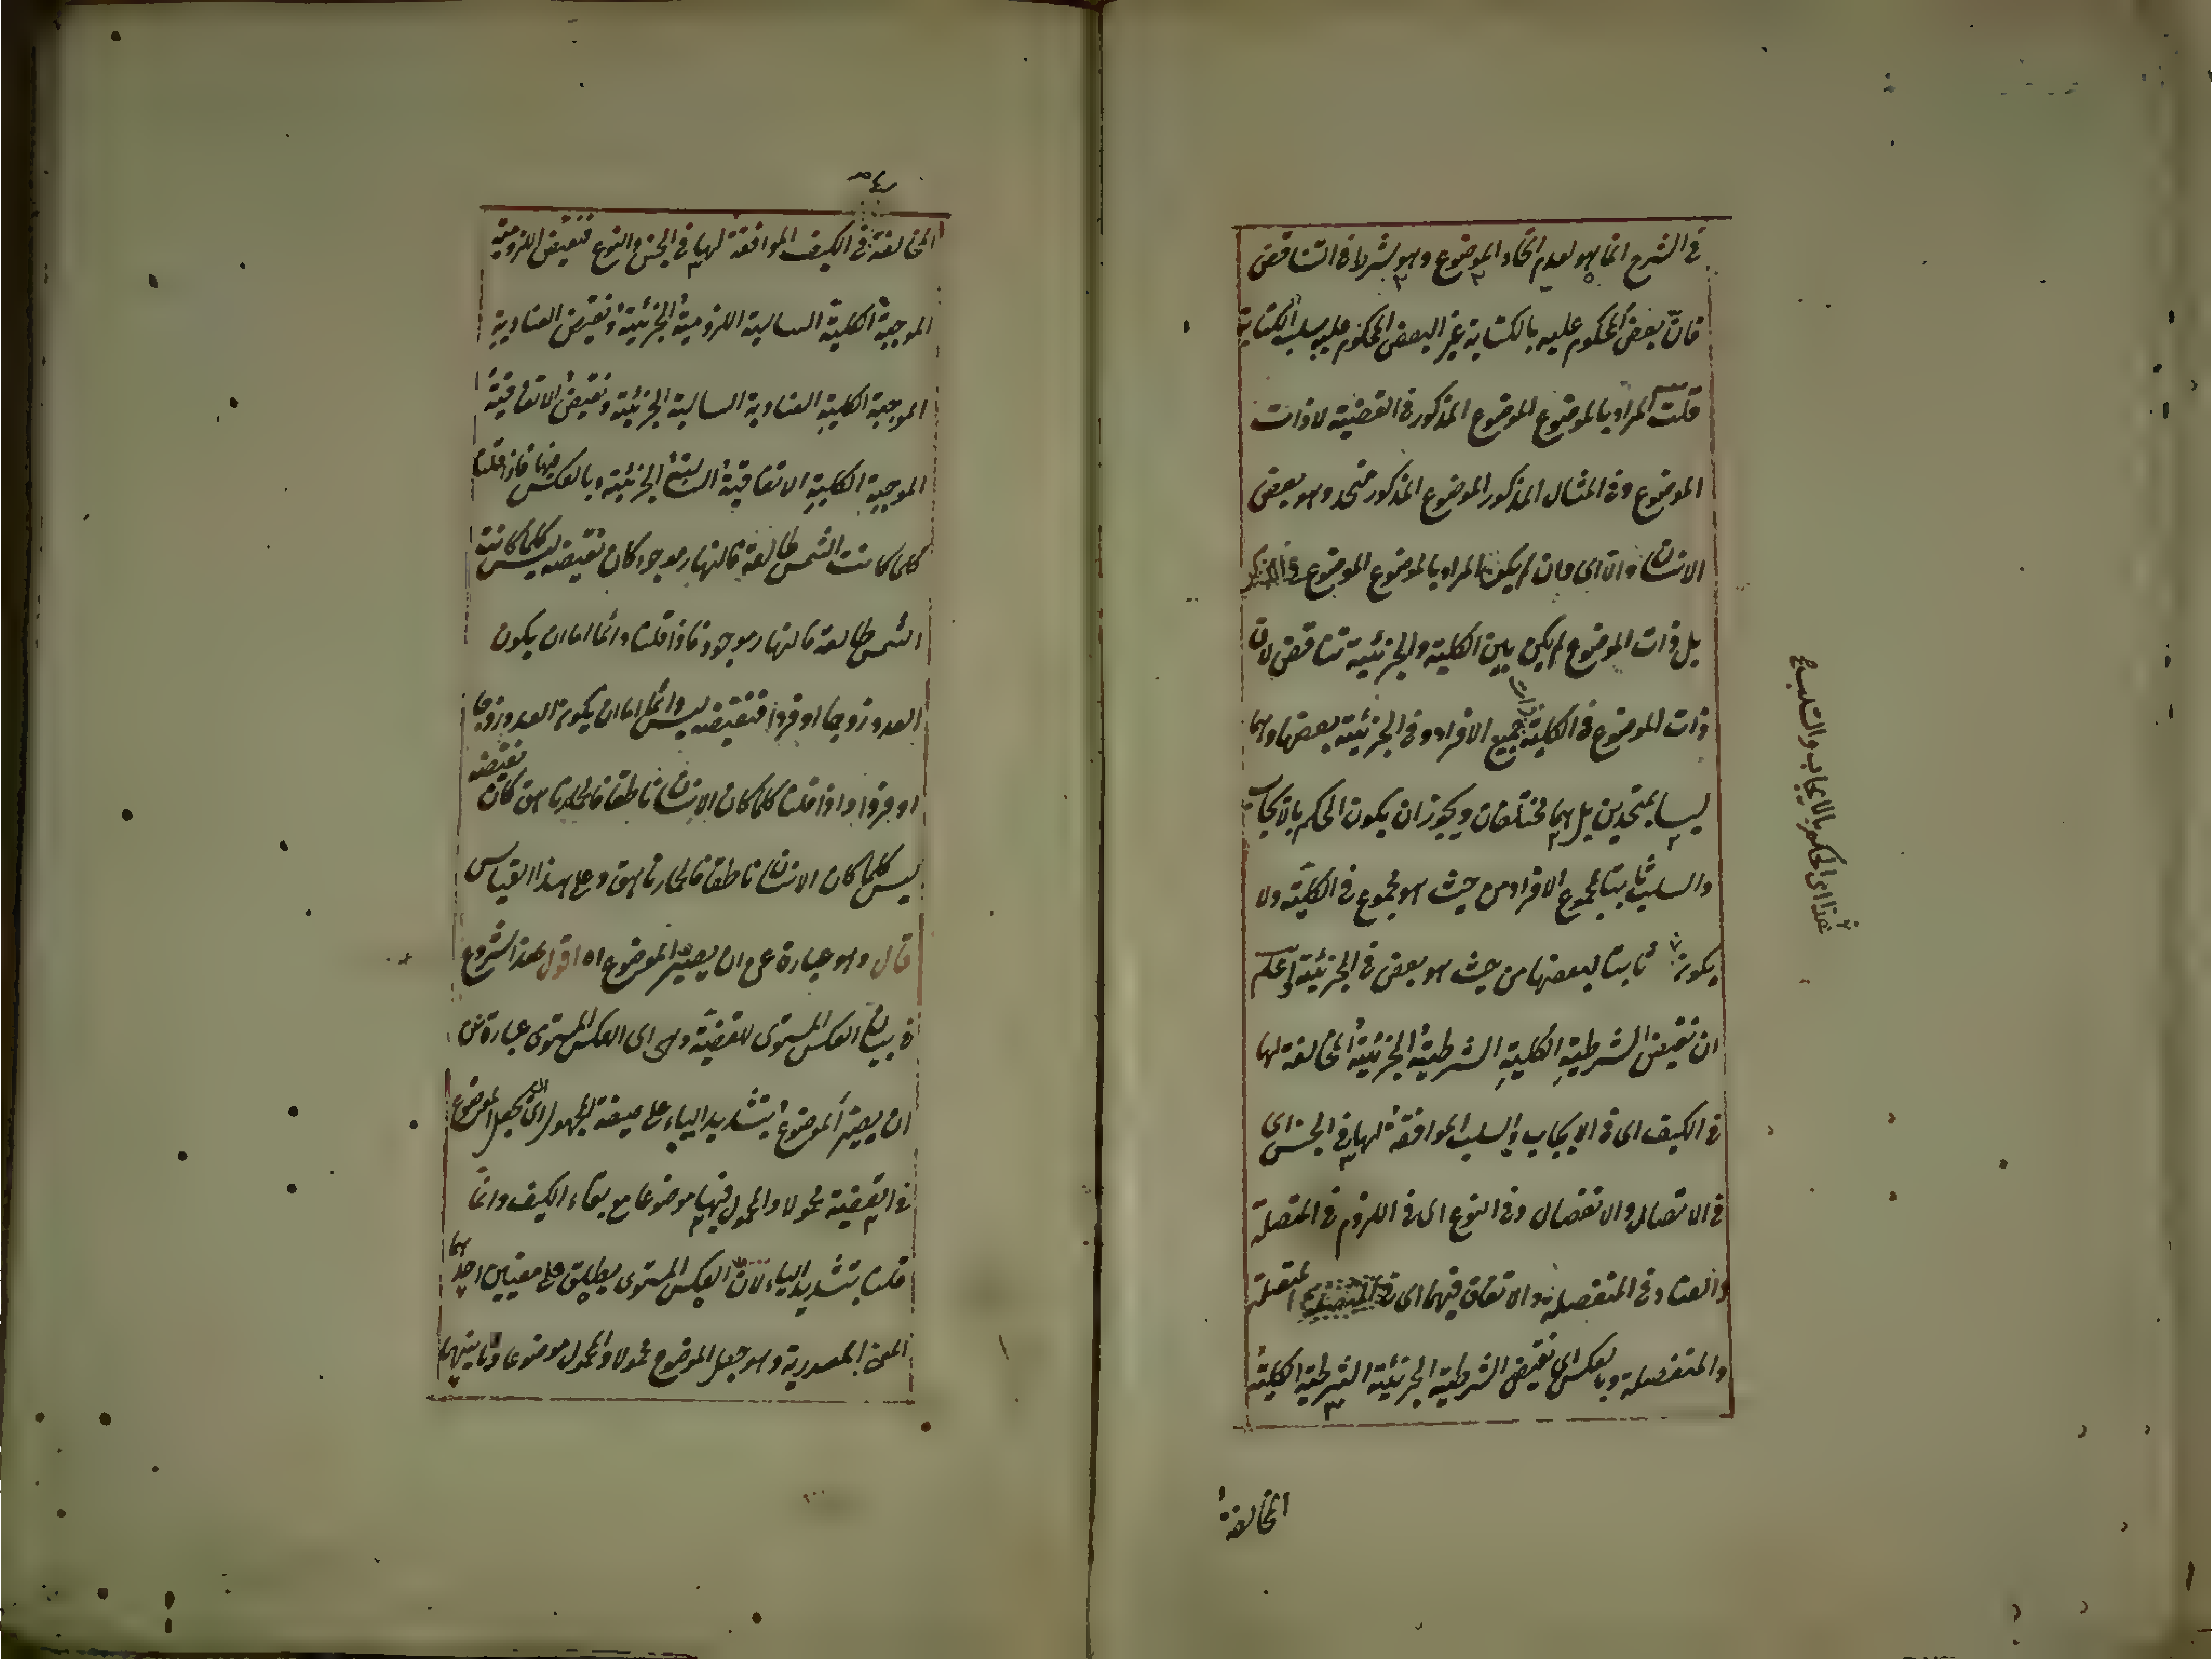 في الشرح انما هو لعدم اتحاد الموضوع وهو شرط في التناقض
فان بعض المحكوم عليه بالكتابة غير البعض المحكوم عليه بسلب الكتابة
قلت المراد بالموضوع الموضوع المذكور في القضية لا ذات
الموضوع وفي المثال المذكور الموضوع المذكور متحد وهو بعض
الانسان والا اى وان لم يكن المراد بالموضوع الموضوع في الذكر
بل ذات الموضوع لم يكن بين الكلية والجزئية تناقض لان
ذات الموضوع في الكلية جميع الافراد وفي الجزئية بعضها وهما
ليسا بمتحدين بل هما مختلفان ويجوز ان يكون الحكم بالايجاب
والسلب ثابتا لمجموع الافراد من حيث هو مجموع في الكلية ولا
يكون ثابتا لبعضها من حيث هو بعض في الجزئية واعلم
ان نقيض الشرطية الكلية الشرطية الجزئية المخالفة لها
في الكيف اى في الايجاب والسلب الموافقة لها في الجنس اى
في الاتصال والانفصال وفي النوع اى في اللزوم في المتصلة
والعناد في المنفصلة والاتفاق فيهما اى في المتصلة
والمنفصلة وبالعكس اى نقيض الشرطية الجزئية الشرطية الكلية
المخالفة
هذا اى الحكم بالايجاب والسلب
المخالفة في الكيف الموافقة لها في الجنس والنوع فنقيض اللزومية
الموجبة الكلية السالبة اللزومية الجزئية ونقيض العنادية
الموجبة الكلية العنادية السالبة الجزئية ونقيض الاتفاقية
الموجبة الكلية الاتفاقية السالبة الجزئية وبالعكس فيها فاذا قلنا
كلما كانت الشمس طالعة فالنهار موجود كان نقيضه ليس كلما كانت
الشمس طالعة فالنهار موجود فاذا قلنا دائما اما ان يكون
العدد زوجا او فردا فنقيضه ليس دائما اما ان يكون العدد زوجا
او فردا واذا قلنا كلما كان الانسان ناطقا فالحمار ناهق كان نقيضه
ليس كلما كان الانسان ناطقا فالحمار ناهق وعلى هذا القياس
قال وهو عبارة عن ان يصير الموضوع اه اقول هذا شروع
في بيان العكس المستوى للقضية وهو اى العكس المستوى عبارة عن
ان يصير الموضوع بتشديد الياء على صيغة المجهول اى يجعل الموضوع
في القضية محمولا والمحمول فيها موضوعا مع بقاء الكيف وانما
قلنا بتشديد الياء لان العكس المستوى يطلق على معنيين احدهما
المعنى المصدرية وهو جعل الموضوع محمولا والمحمول موضوعا وثانيهما